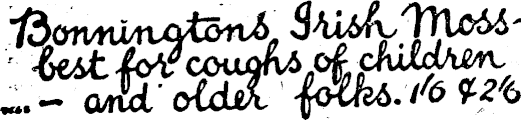 Bonningtons Irish Moss-
best for coughs of children
— and older folks. 1/6 & 2/6